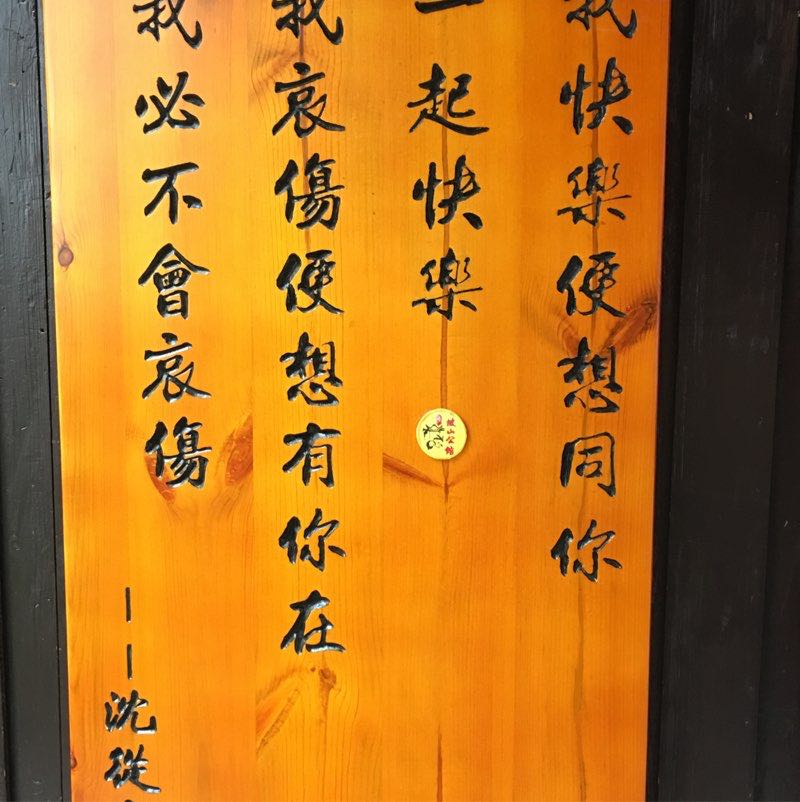 我快樂便想同你
一起快樂
我哀傷便想有你在
我必不會哀傷
——沈從